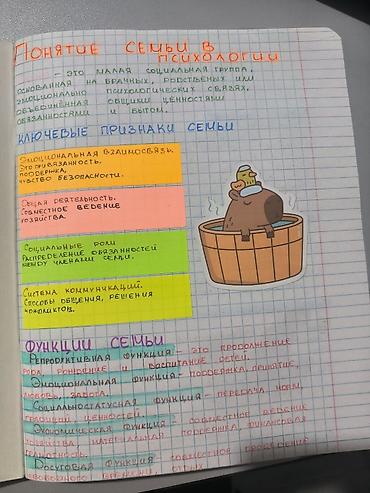 Понятие семьи в
психологии
- это малая социальная группа,
основанная на брачных, родственых или
эмоционально психологических связях,
объединённая общими ценностями
обязанностями и бытом.
Ключевые признаки семьи
Эмоциональная взаимосвязь.
Это привязанность,
поддержка,
чувство безопасности.
Общая деятельность.
Совместное ведение
хозяйства.
Социальные роли
Распределение обязанностей
между членами семьи.
Система коммуникаций.
Способы общения, решения
конфликтов.
Функции семьи
Репродуктивная функция - это продолжение
рода, рождение и воспитание детей.
Эмоциональная функция - поддержка, принятие,
любовь, забота.
Социальностатусная функция - передача норм,
традиций, ценностей.
Экономическая функция - совместное ведение
хозяйства материальная поддержка, финансовая
грамотность.
Досуговая функция - совместное проведение
свободного времени, отдых